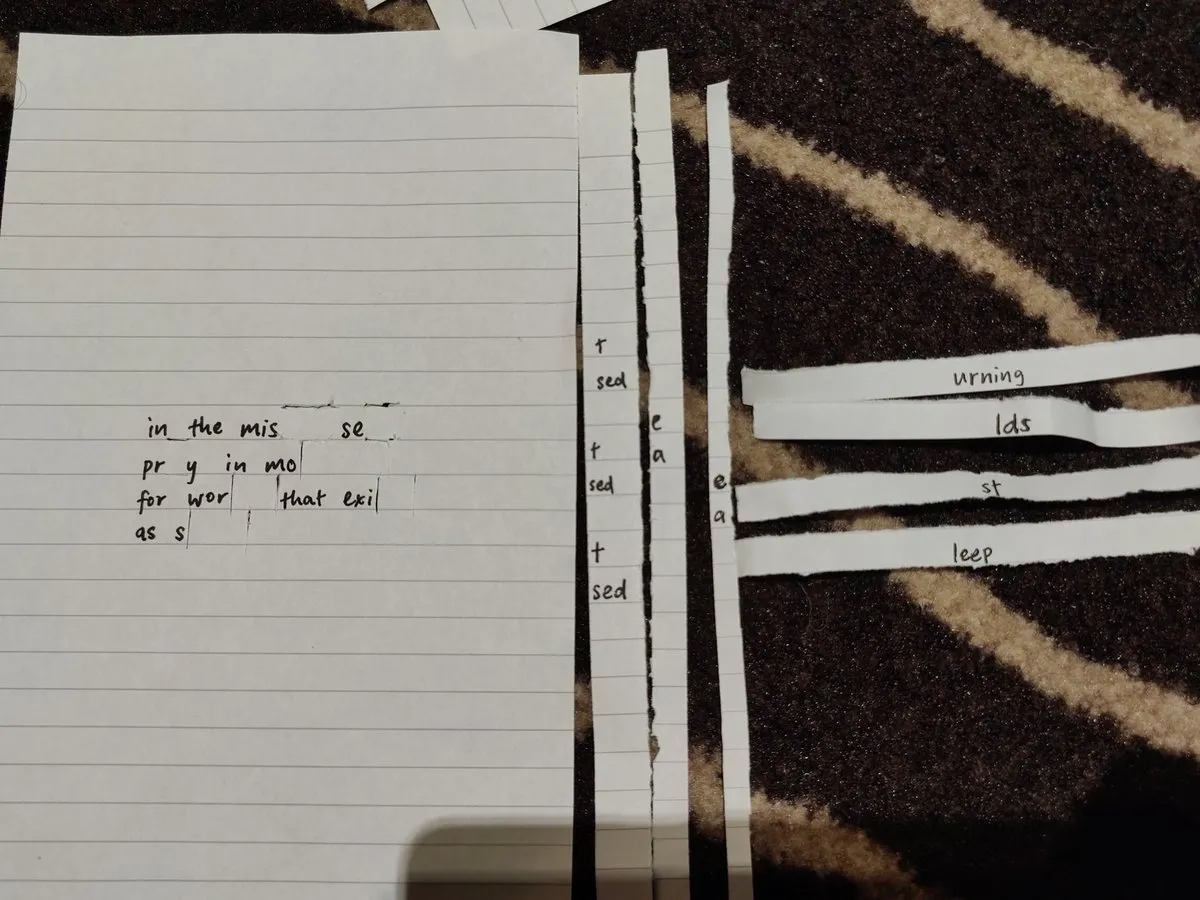 in the mis se
pr y in mo
for wor that exi
as s
t
sed
t
sed
t
sed
e
a
e
a
urning
lds
st
leep